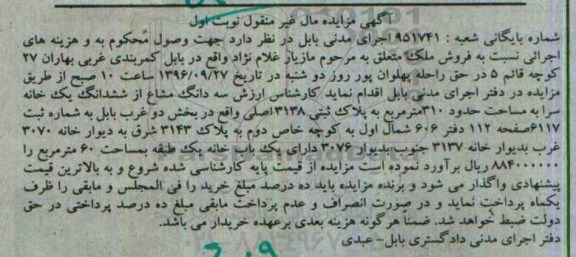 آگهی مزایده مال غیر منقول نوبت اول
شماره بایگانی شعبه : ۹۵۱۷۴۱ اجرای مدنی بابل در نظر دارد جهت وصول محکوم به و هزینه های
اجرائی نسبت به فروش ملک متعلق به مرحوم مازیار غلام نژاد واقع در بابل کمربندی غربی بهاران ۲۷
کوچه قائم ۵ در حق راحله پهلوان پور روز دو شنبه در تاریخ ۱۳۹۶/۰۹/۲۷ ساعت ۱۰ صبح از طریق
مزایده در دفتر اجرای مدنی بابل اقدام نماید کارشناس ارزش سه دانگ مشاع از ششدانگ یک خانه
سرا به مساحت حدود ۳۱۰مترمربع به پلاک ثبتی ۳۱۳۸اصلی واقع در بخش دو غرب بابل به شماره ثبت
۶۱۱۷صفحه ۱۱۲ دفتر ۶۰۶ شمال اول به کوچه خاص دوم به پلاک ۳۱۴۳ شرق به دیوار خانه ۳۰۷۰
غرب بدیوار خانه ۳۱۳۷ جنوب بدیوار ۳۰۷۶ دارای یک باب خانه یک طبقه بمساحت ۶۰ مترمربع را
۸۸۴۰۰۰۰۰۰ ریال برآورد نموده است مزایده از قیمت پایه کارشناسی شده شروع و به بالاترین قیمت
پیشنهادی واگذار می شود و برنده مزایده باید ده درصد مبلغ خرید را فی المجلس و مابقی را ظرف
یکماه پرداخت نماید و در صورت انصراف و عدم پرداخت مابقی مبلغ ده درصد پرداختی در حق
دولت ضبط خواهد شد. ضمنا هرگونه هزینه بعدی برعهده خریدار می باشد.
دفتر اجرای مدنی دادگستری بابل- عبدی